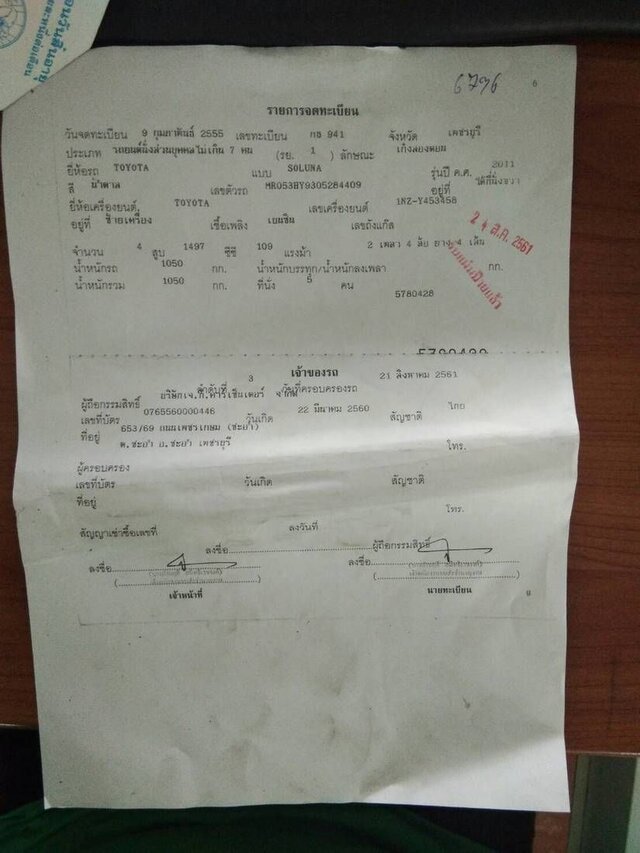 6796
6
รายการจดทะเบียน
วันจดทะเบียน 9 กุมภาพันธ์ 2555 เลขทะเบียน กธ 941 จังหวัด เพชรบุรี
ประเภท รถยนต์นั่งส่วนบุคคลไม่เกิน 7 คน (รย. 1 ) ลักษณะ เก๋งสองตอน
ยี่ห้อรถ TOYOTA แบบ SOLUNA รุ่นปี ค.ศ. 2011
สี น้ำตาล เลขตัวรถ MR053HY9305284409 อยู่ที่ ใต้ที่นั่งขวา
ยี่ห้อเครื่องยนต์. TOYOTA เลขเครื่องยนต์ 1NZ-Y453458
อยู่ที่ ซ้ายเครื่อง เชื้อเพลิง เบนซิน เลขถังแก๊ส
จำนวน 4 สูบ 1497 ซีซี 109 แรงม้า 2 เพลา 4 ล้อ ยาง 4 เส้น
น้ำหนักรถ 1050 กก. น้ำหนักบรรทุก/น้ำหนักลงเพลา กก.
น้ำหนักรวม 1050 กก. ที่นั่ง 5 คน
5780428
2 4 ส.ค. 2561
เจ้าของรถ
ลำดับที่ 3 วันที่ครอบครองรถ 21 สิงหาคม 2561
ผู้ถือกรรมสิทธิ์ บริษัทเจ.ที.คาร์เซ็นเตอร์ จำกัด
เลขที่บัตร 0765560000446 วันเกิด 22 มีนาคม 2560 สัญชาติ ไทย
ที่อยู่ 653/69 ถนนเพชรเกษม (ชะอำ) โทร.
ต.ชะอำ อ.ชะอำ เพชรบุรี
ผู้ครอบครอง
เลขที่บัตร วันเกิด สัญชาติ
ที่อยู่ โทร.
สัญญาเช่าซื้อเลขที่ ลงวันที่
ลงชื่อ ผู้ถือกรรมสิทธิ์
ลงชื่อ ลงชื่อ
เจ้าหน้าที่ นายทะเบียน